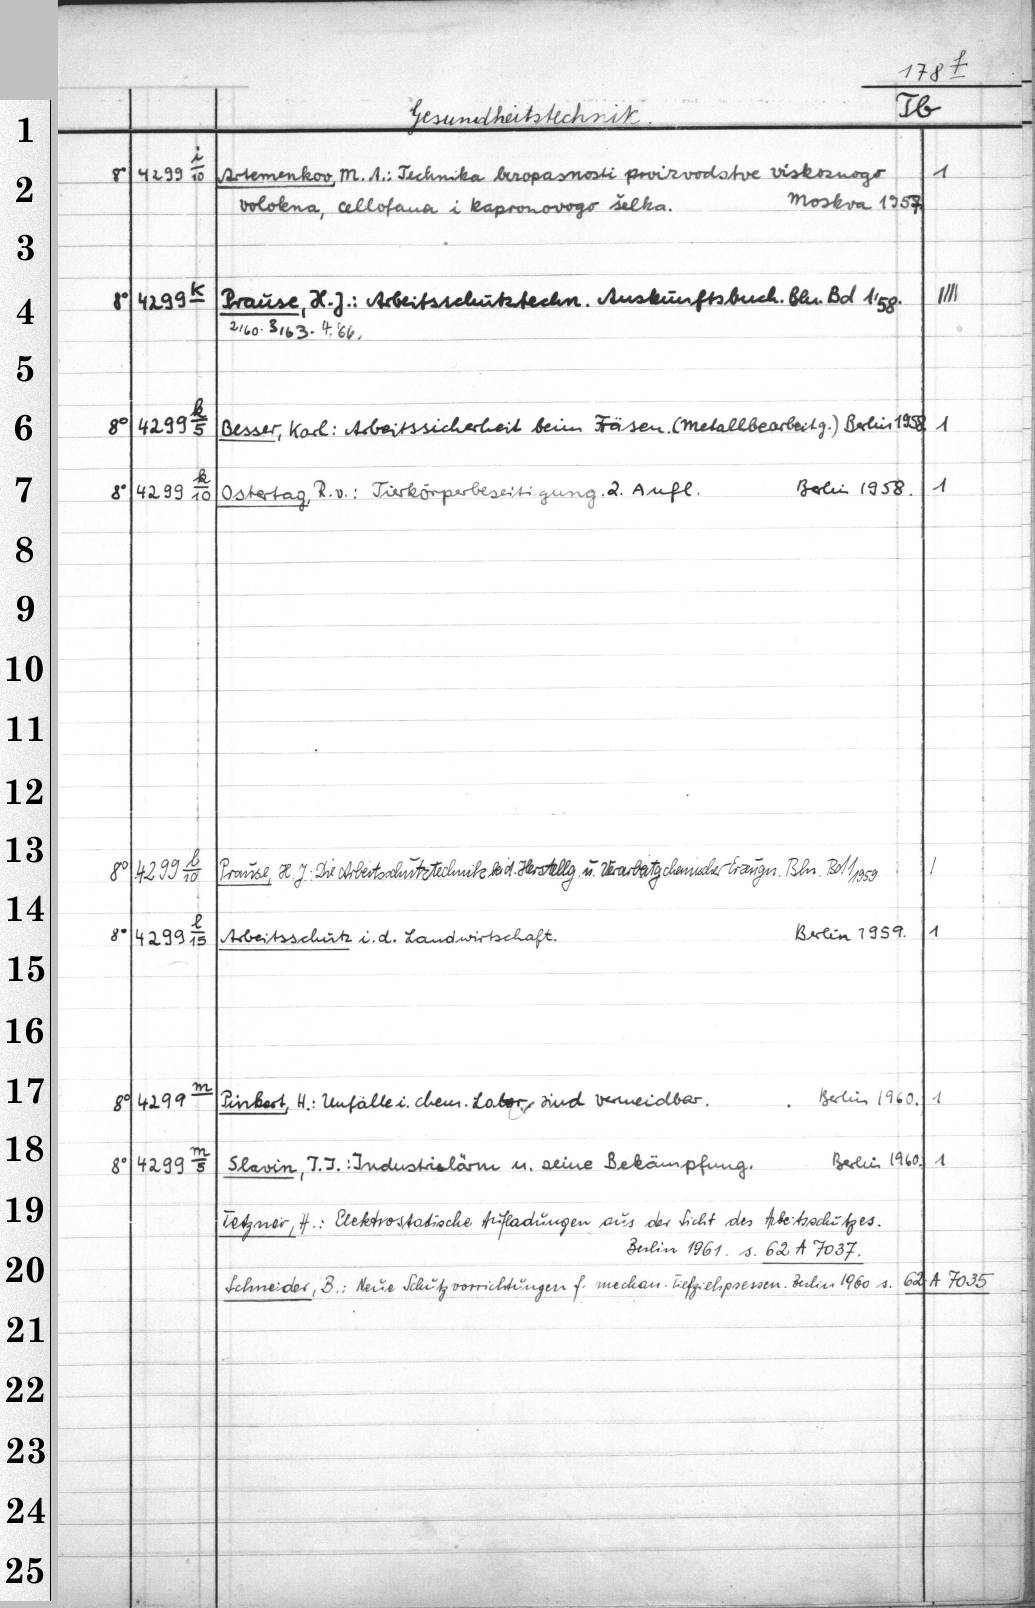 178 f
Gesundheitstechnik. Tb
1
8° 4299 i/10 Artemenkov, M. A.: Technika bezopasnosti proizvodstve viskoznogo 1
2
volokna, cellofana i kapronovogo šelka. Moskva 1957.
3
8° 4299 k Prause, H.-J.: Arbeitsschutztechn. Auskunftsbuch. Bln. Bd 1,'58. IIII
4
2,'60. 3,'63. 4,'66.
5
8° 4299 k/5 Besser, Karl: Arbeitssicherheit beim Fräsen. (Metallbearbeitg.) Berlin 1958. 1
6
8° 4299 k/10 Ostertag, R. v.: Tierkörperbeseitigung. 2. Aufl. Berlin 1958. 1
7
8
9
10
11
12
13
8° 4299 l/10 Prause, H. J.: Die Arbeitsschutztechnik bei d. Herstellg u. Verarbeitg chemischer Erzeugn. Bln. Bd 1/1959 1
14
8° 4299 l/15 Arbeitsschutz i. d. Landwirtschaft. Berlin 1959. 1
15
16
17
8° 4299 m Pinkert, H.: Unfälle i. chem. Labor. sind vermeidbar. Berlin 1960. 1
18
8° 4299 m/5 Slavin, I. I.: Industrielärm u. seine Bekämpfung. Berlin 1960. 1
19
Tetzner, H.: Elektrostatische Aufladungen aus der Sicht des Arbeitsschutzes.
Berlin 1961. s. 62 A 7037.
20
Schneider, B.: Neue Schutzvorrichtungen f. mechan. Tiefziehpressen. Berlin 1960 s. 62 A 7035
21
22
23
24
25